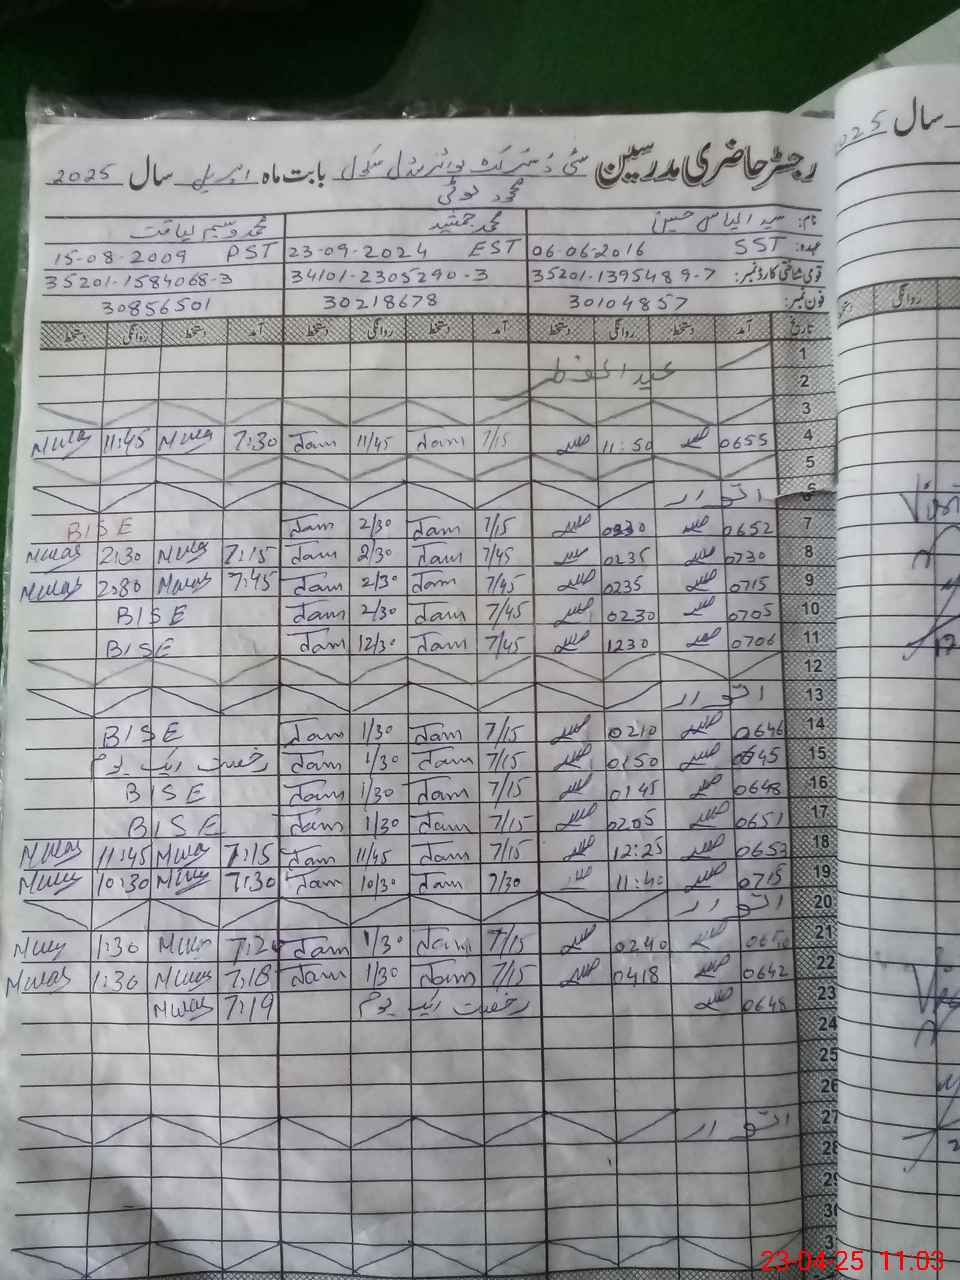 رجسٹر حاضری مدرسین سٹی ڈسٹرکٹ بوائز مڈل سکول بابت ماہ اپریل سال 2025
محمود بوٹی
نام: سید الیاس حسین محمد جمشید محمد وسیم لیاقت
عہدہ: SST 06-06-2016 EST 23-09-2024 PST 15-08-2009
قومی شناختی کارڈ نمبر: 35201-1395489-7 34101-2305290-3 35201-1584068-3
فون نمبر: 30104857 30218678 30856501
تاریخ آمد دستخط روانگی دستخط آمد دستخط روانگی دستخط آمد دستخط روانگی دستخط
1
2 عید الفطر
3
4 0655 11:50 7/15 Jam 11/45 Jam 7:30 11:45
5
6 اتوار
7 0652 0230 7/15 Jam 2/30 Jam BISE
8 0730 0235 7/45 Jam 2/30 Jam 7:15 Mwas 2:30 Mwas
9 0715 0235 7/45 Jam 2/30 Jam 7:45 Mwas 2:30 Mwas
10 0705 0230 7/45 Jam 2/30 Jam BISE
11 0706 1230 7/45 Jam 12/30 Jam BISE
12
13 اتوار
14 0646 0210 7/15 Jam 1/30 Jam BISE
15 0645 0150 7/15 Jam 1/30 Jam رخصت ایک یوم
16 0648 0145 7/15 Jam 1/30 Jam BISE
17 0651 0205 7/15 Jam 1/30 Jam BISE
18 0653 12:25 7/15 Jam 11/45 Jam 7:15 Mwas 11:45 Mwas
19 0715 11:40 7/30 Jam 10/30 Jam 7:30 10:30
20 اتوار
21 0240 7/15 Jam 1/30 Jam 1:30
22 0642 0418 7/15 Jam 1/30 Jam 7:18 Mwas 1:30 Mwas
23 0648 رخصت ایک یوم 7:19 Mwas
24
25
26
27 اتوار
28
29
30
سال 2025
روانگی
23-04-25 11.03